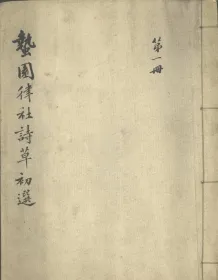 蟄園律社詩草初選
第一冊